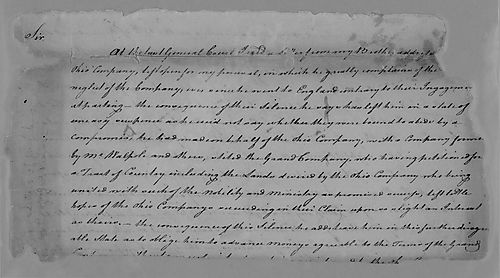 Sir,
At the last General Court I rec'd a letter from my Brother, address'd to
Ohio Company, left open for my perusal, in which he greatly complains of the
neglect of the Company ever since he went to England, contrary to their Engagements
at parting — the consequence of their Silence he says has left him in a state of
uneasy suspence as he could not say whether they were bound to abide by a
compromise he had made on behalf of the Ohio Company, with a Company formed
by Mr. Walpole and others, called the Grand Company, who having petitioned for
a Tract of Country including the Lands desired by the Ohio Company who being
united with such of the Nobility and Ministry as promised success, left little
hopes of the Ohio Company's succeeding in their Claim upon so slight an Interest
as theirs — the consequence of this Silence he adds leave him in this further disagree-
able State as to oblige him to advance moneys agreeable to the Terms of the Grand